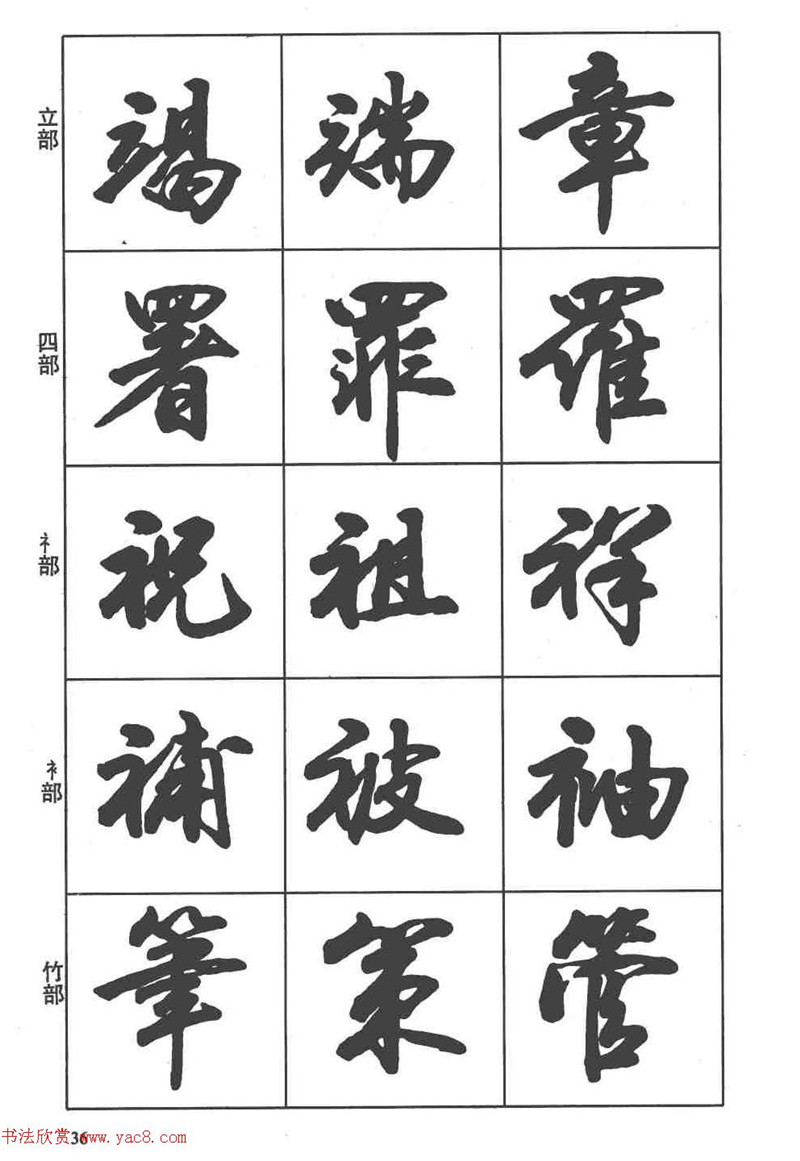 立部 竭 端 章
四部 署 罪 羅
礻部 祝 祖 祥
衤部 補 被 袖
竹部 筆 策 管
36
书法欣赏www.yac8.com